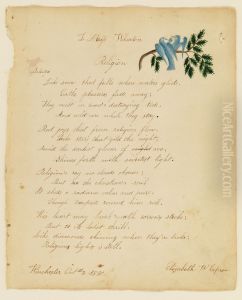 To Miss Wharton
Religion
Like snow that falls where waters glide
Earth's pleasures fade away;
They melt in time's destroying tide,
And cold are while they stay.
But joys that from religion flow,
Like stars that gild the night,
Amid the darkest gloom of
Shine forth with sweetest light.
Religion's ray no clouds obscure
But o'er the christian's soul
It sheds a radiance calm and pure
Though tempests round him roll
His heart may break with sorrow's stroke
But to its latest thrill
Like diamonds shining when they're broke
Religion lights it still.
Elizabeth W.
NiceArtGallery.com